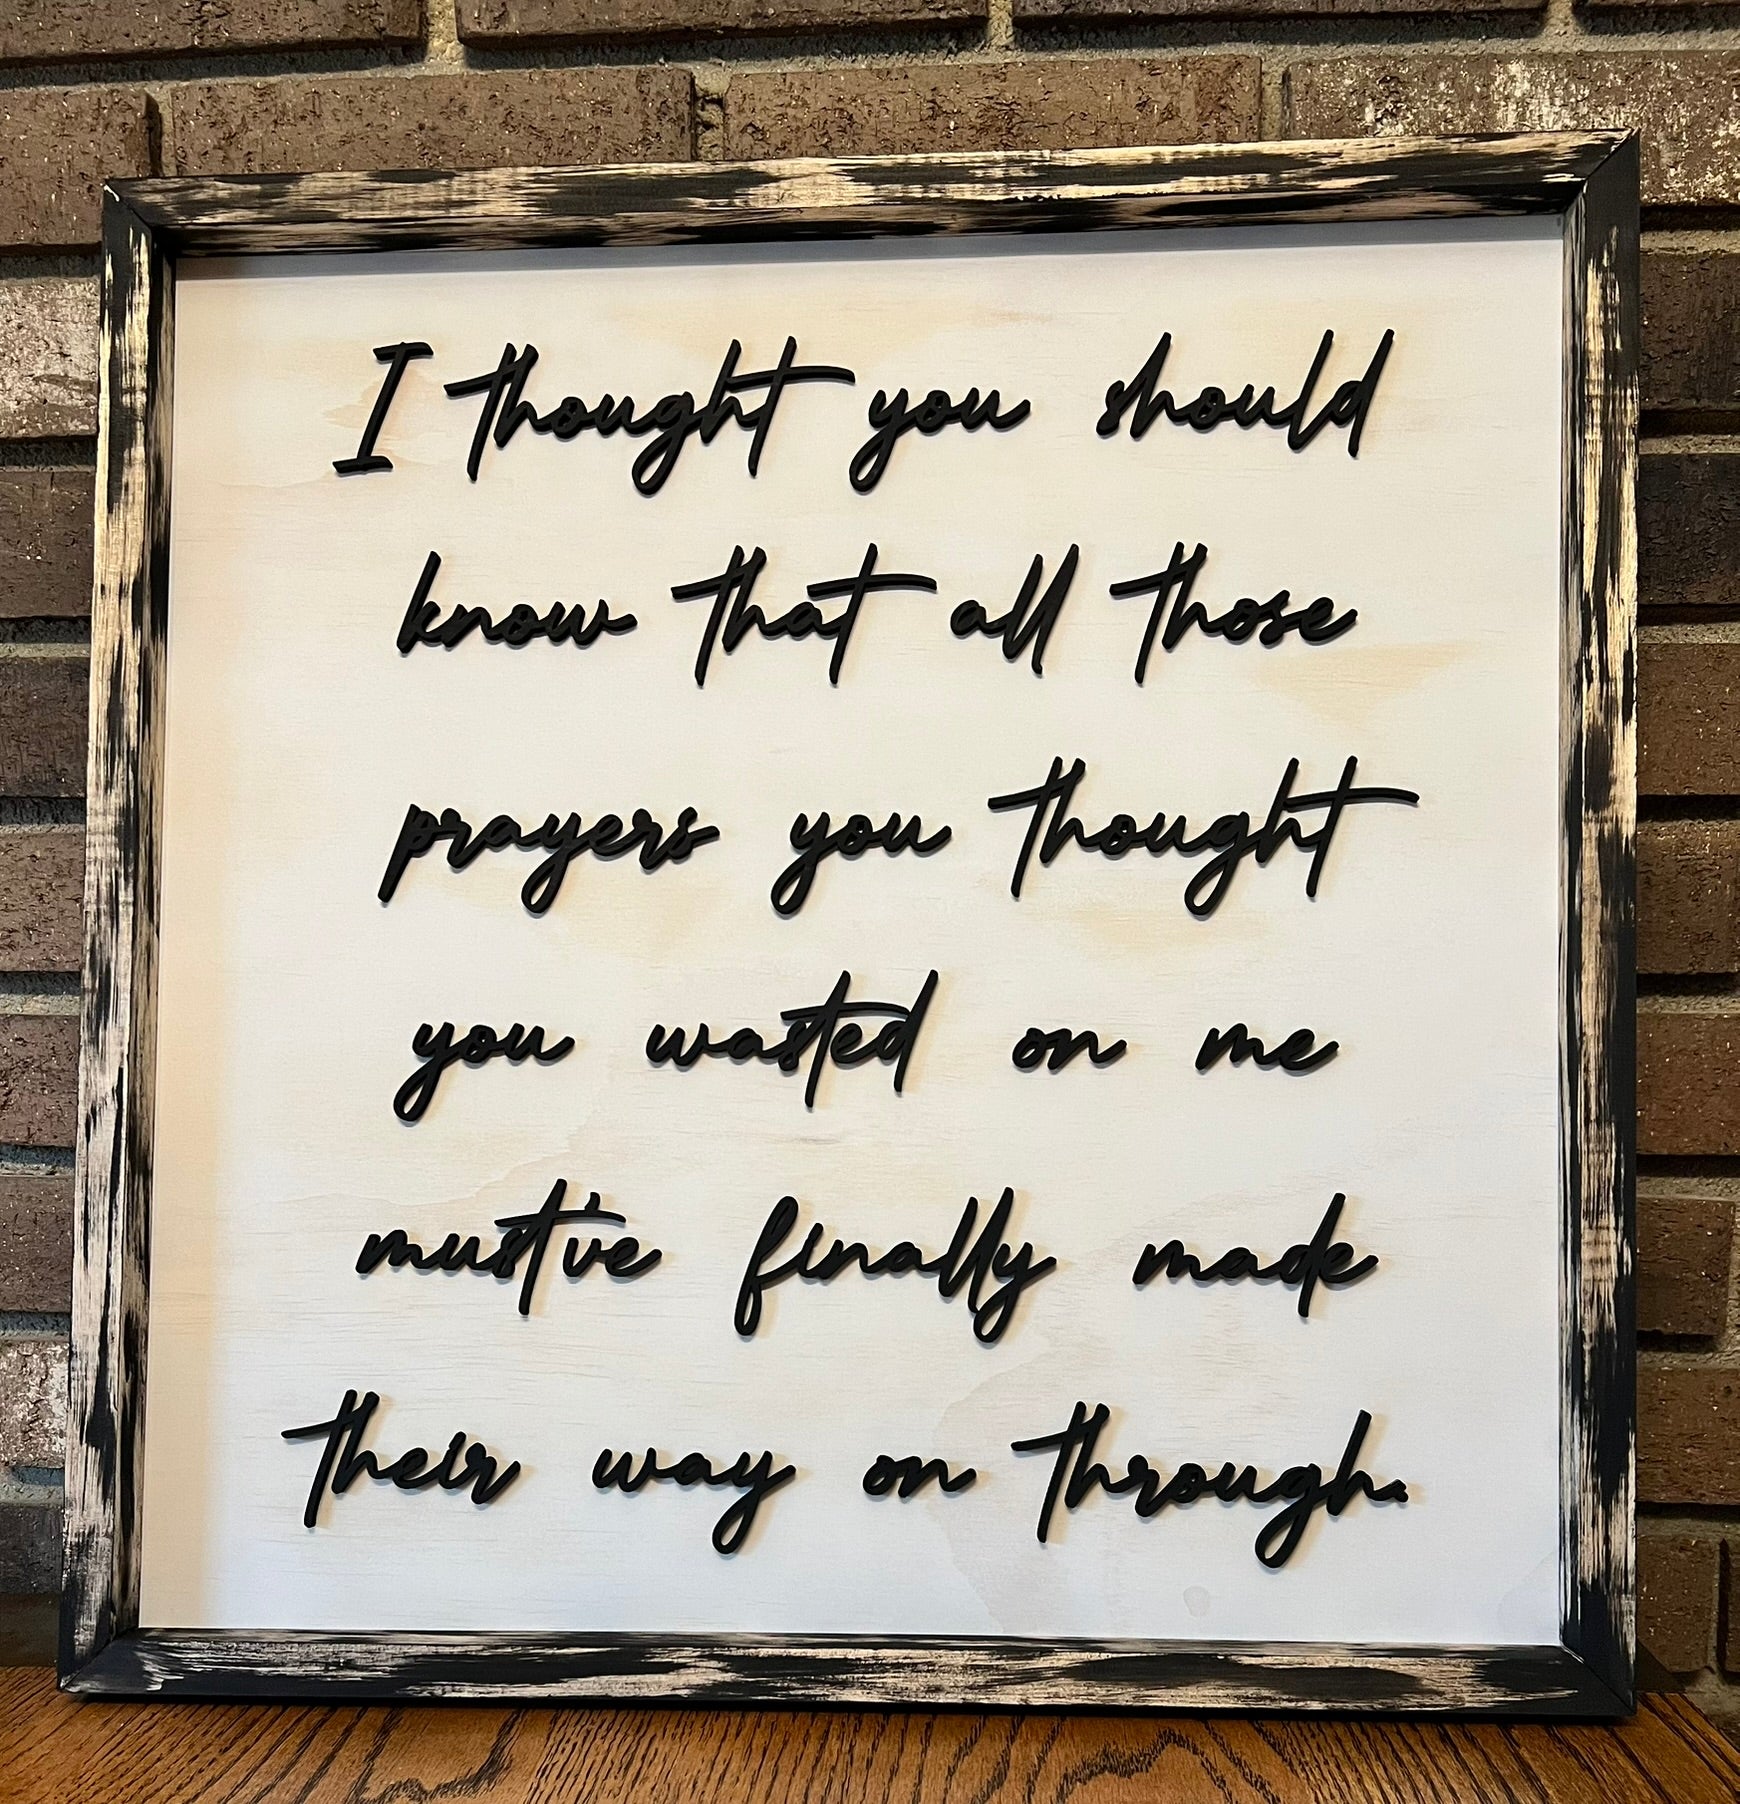 I thought you should
know that all those
prayers you thought
you wasted on me
must've finally made
their way on through.